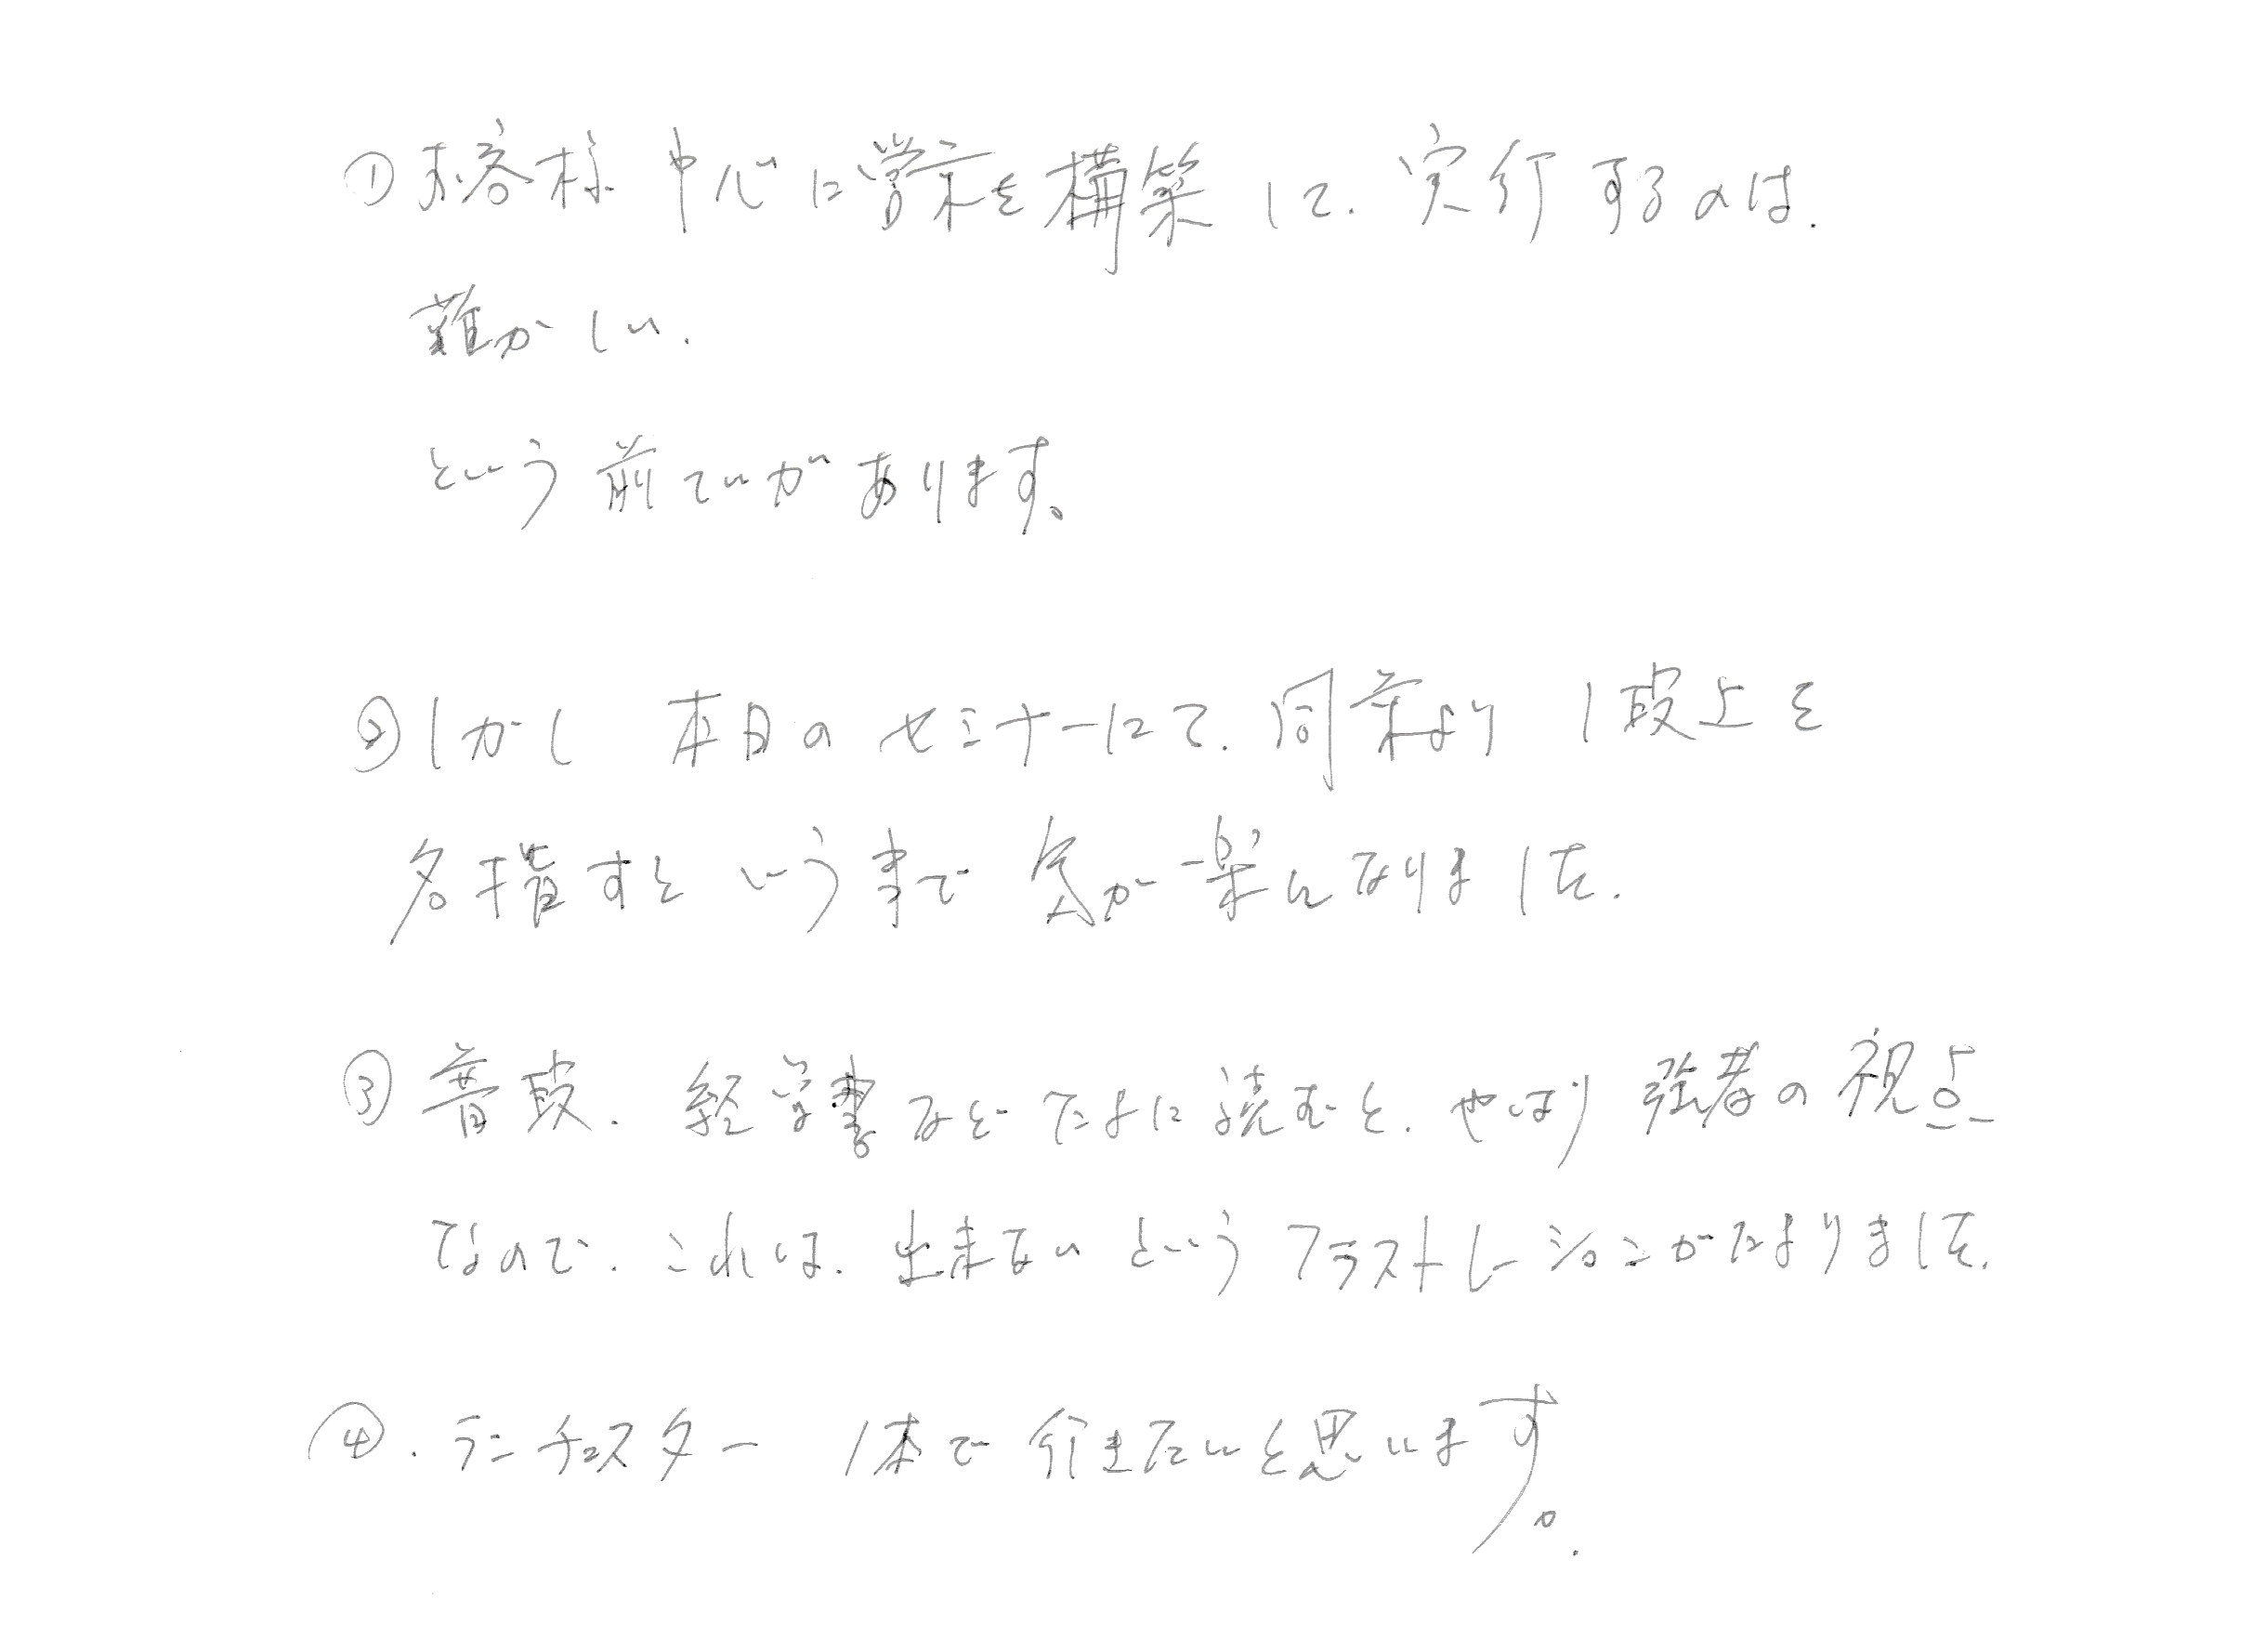 ①お客様中心に営業を構築して、実行するのは、
難かしい、
という前ていがあります。
②しかし 本日のセミナーにて、同業より1段上を
名指すという事で 気が楽になりました。
③普段、経営書などたまに読むと、やはり強者の視点
なので、これは、出来ないというフラストレーションがたまりました。
④. ランチェスター 1本で行きたいと思います。